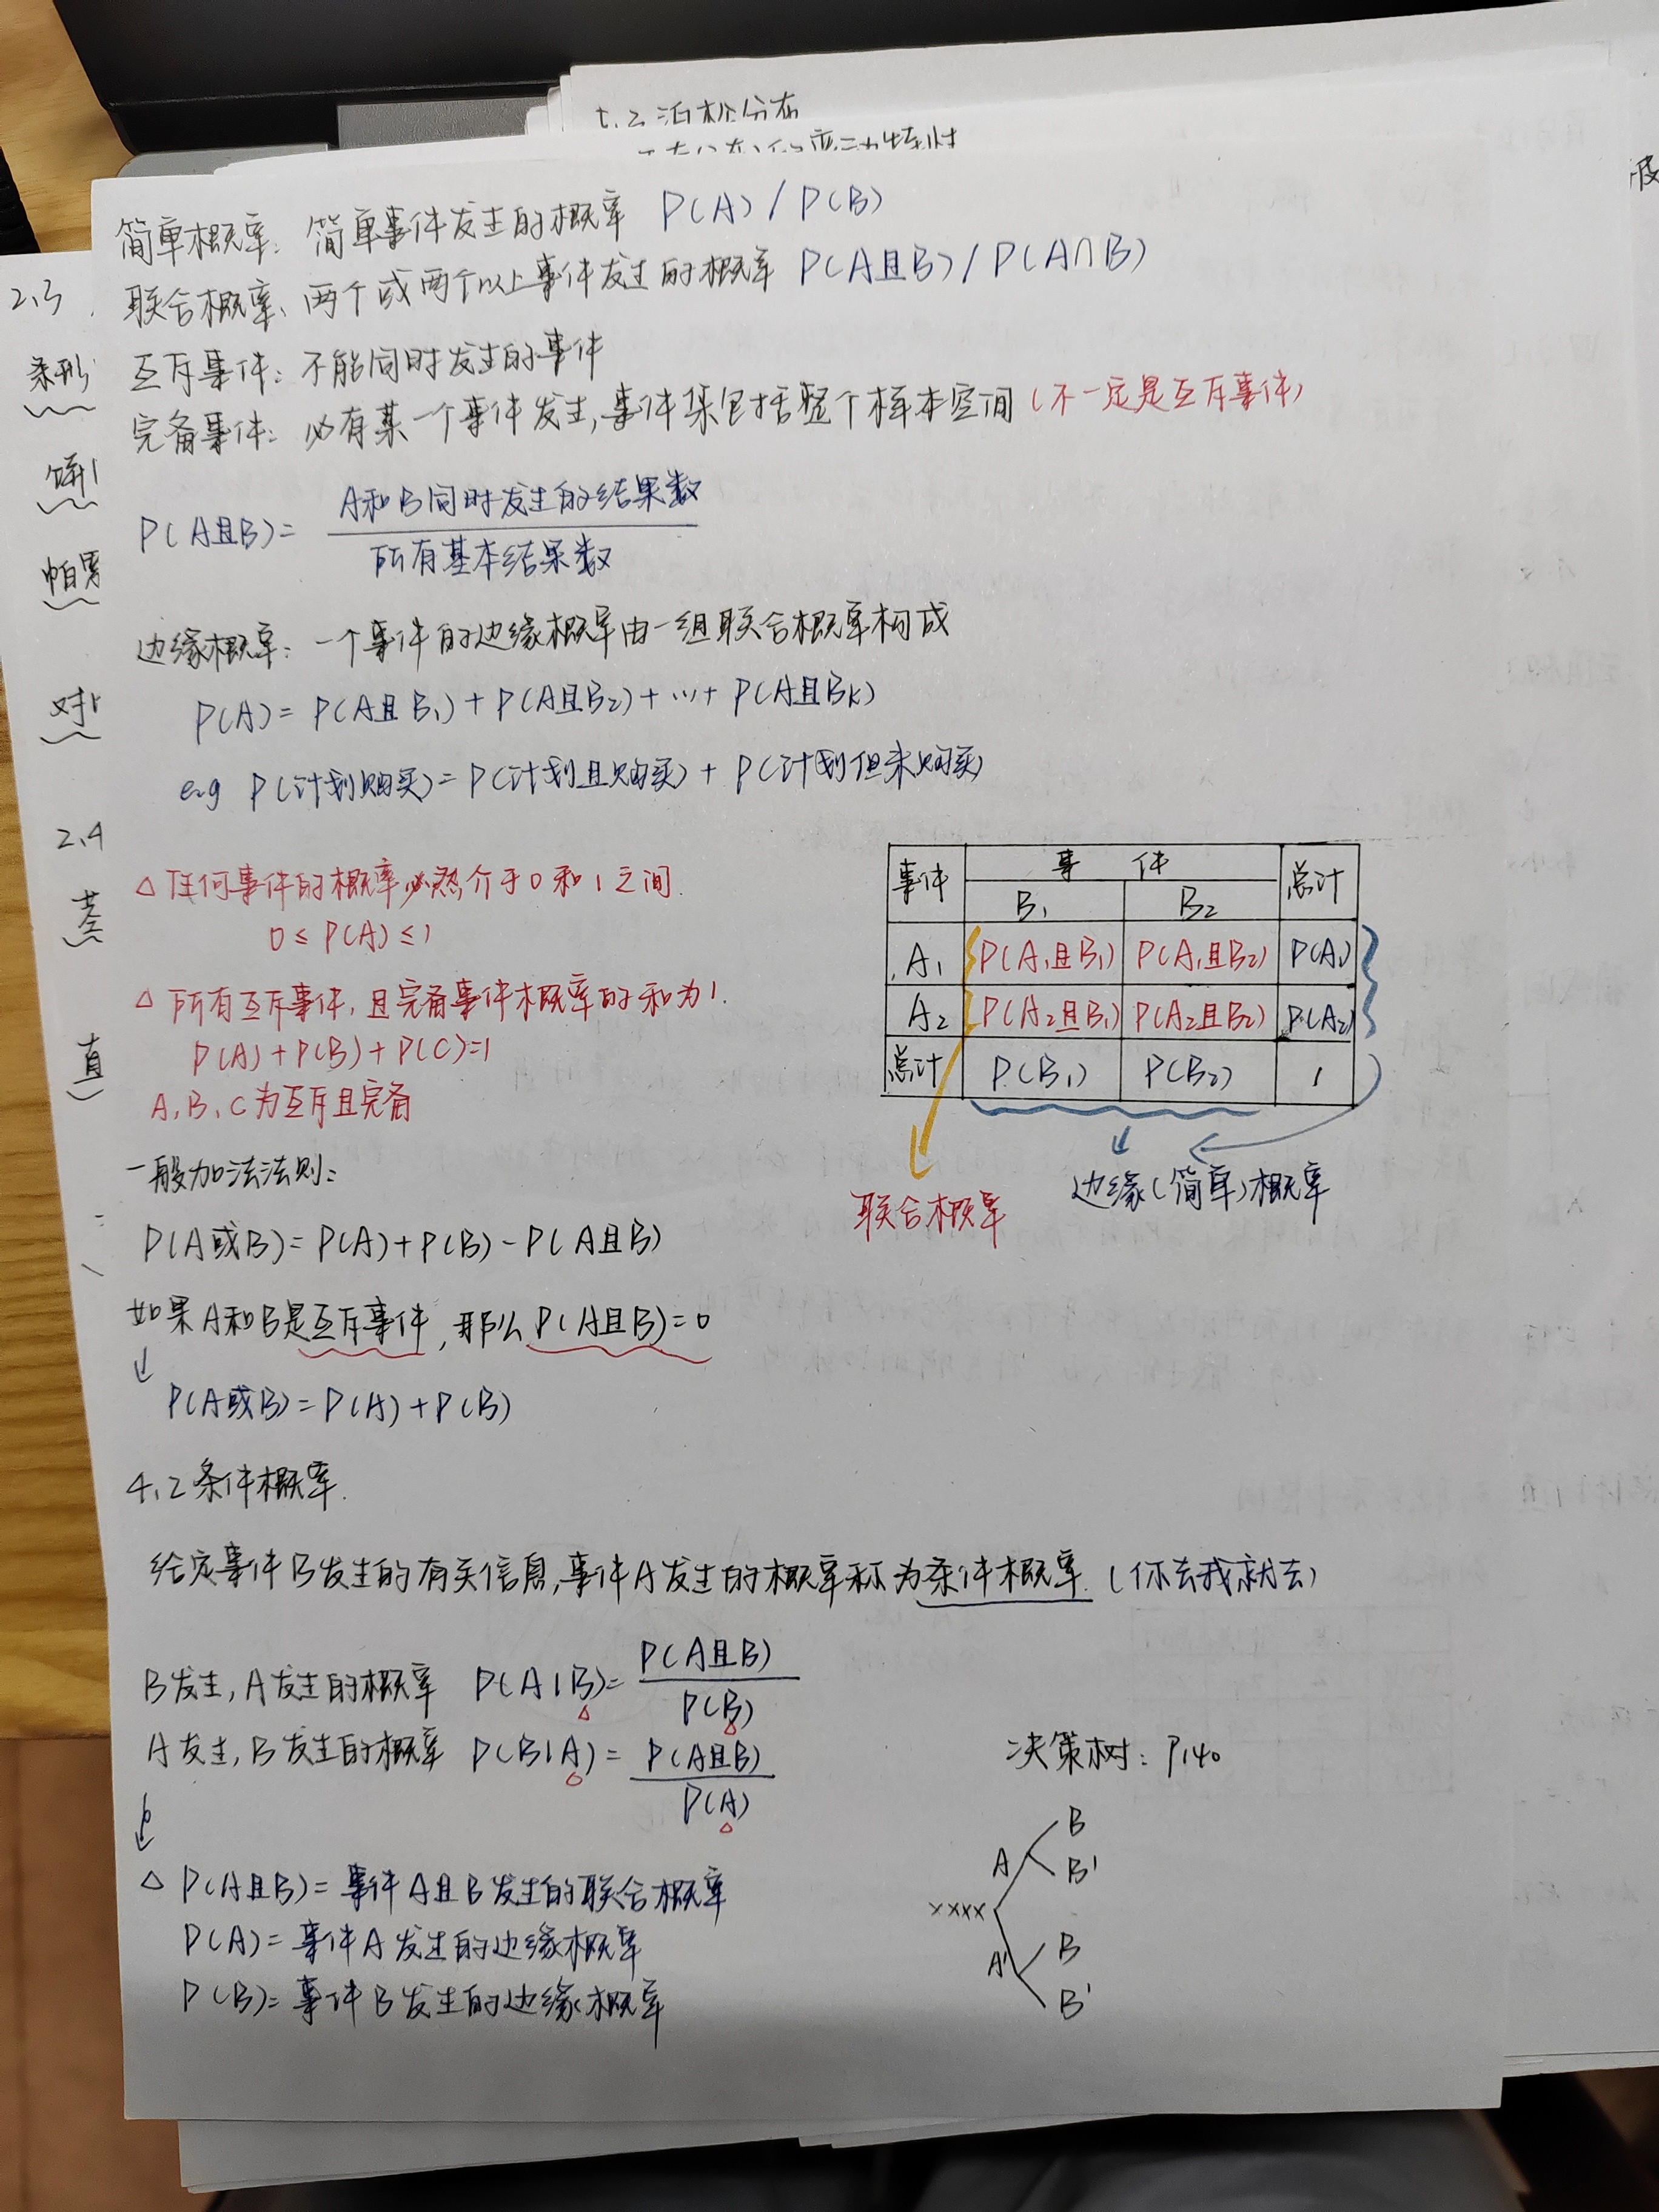 5.3 泊松分布
简单概率: 简单事件发生的概率 P(A) / P(B)
联合概率: 两个或两个以上事件发生的概率 P(A且B) / P(A∩B)
互斥事件: 不能同时发生的事件
完备事件: 必有某一个事件发生,事件集包括整个样本空间(不一定是互斥事件)
P(A且B)= A和B同时发生的结果数
所有基本结果数
边缘概率: 一个事件的边缘概率由一组联合概率构成
P(A)= P(A且B₁)+P(A且B₂)+…+ P(A且Bk)
e.g P(计划购买)=P(计划且购买)+ P(计划但未购买)
△ 任何事件的概率必然介于0和1之间.
0 ≤ P(A) ≤ 1
△ 所有互斥事件,且完备事件概率的和为1.
P(A)+P(B)+P(C)=1
A,B,C为互斥且完备
事件 事 件 总计
B₁ B₂
A₁ P(A₁且B₁) P(A₁且B₂) P(A₁)
A₂ P(A₂且B₁) P(A₂且B₂) P(A₂)
总计 P(B₁) P(B₂) 1
联合概率 边缘(简单)概率
一般加法法则:
P(A或B)=P(A)+P(B)-P(A且B)
如果A和B是互斥事件,那么P(A且B)=0
↓
P(A或B)=P(A)+P(B)
4.2 条件概率.
给定事件B发生的有关信息,事件A发生的概率称为条件概率.(你去我就去)
B发生,A发生的概率 P(A|B)= P(A且B)
P(B)
A发生,B发生的概率 P(B|A)= P(A且B)
P(A)
△ P(A且B)=事件A且B发生的联合概率
P(A)=事件A发生的边缘概率
P(B)=事件B发生的边缘概率
决策树: P140
B
A B'
xxxx
A' B
B'
2.3
条形
饼
对
2.4
茎
直